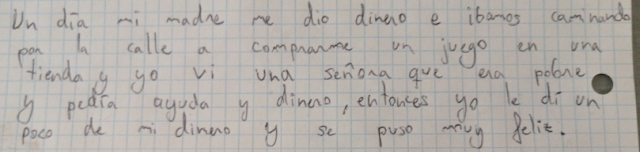 Un día mi madre me dio dinero e ibamos caminando
por la calle a comprarme un juego en una
tienda y yo vi una señora que era pobre
y pedía ayuda y dinero, entonces yo le dí un
poco de mi dinero y se puso muy feliz.